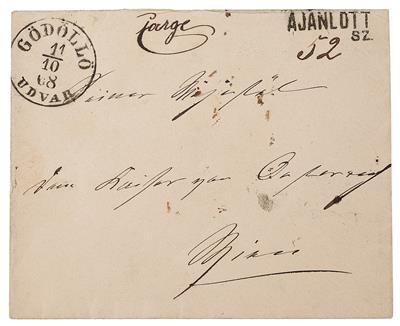 GÖDÖLLÖ
11
10
68
UDVAR
Charge
AJÁNLOTT
SZ.
52
Seiner Majestät
dem Kaiser von Oesterreich
Wien